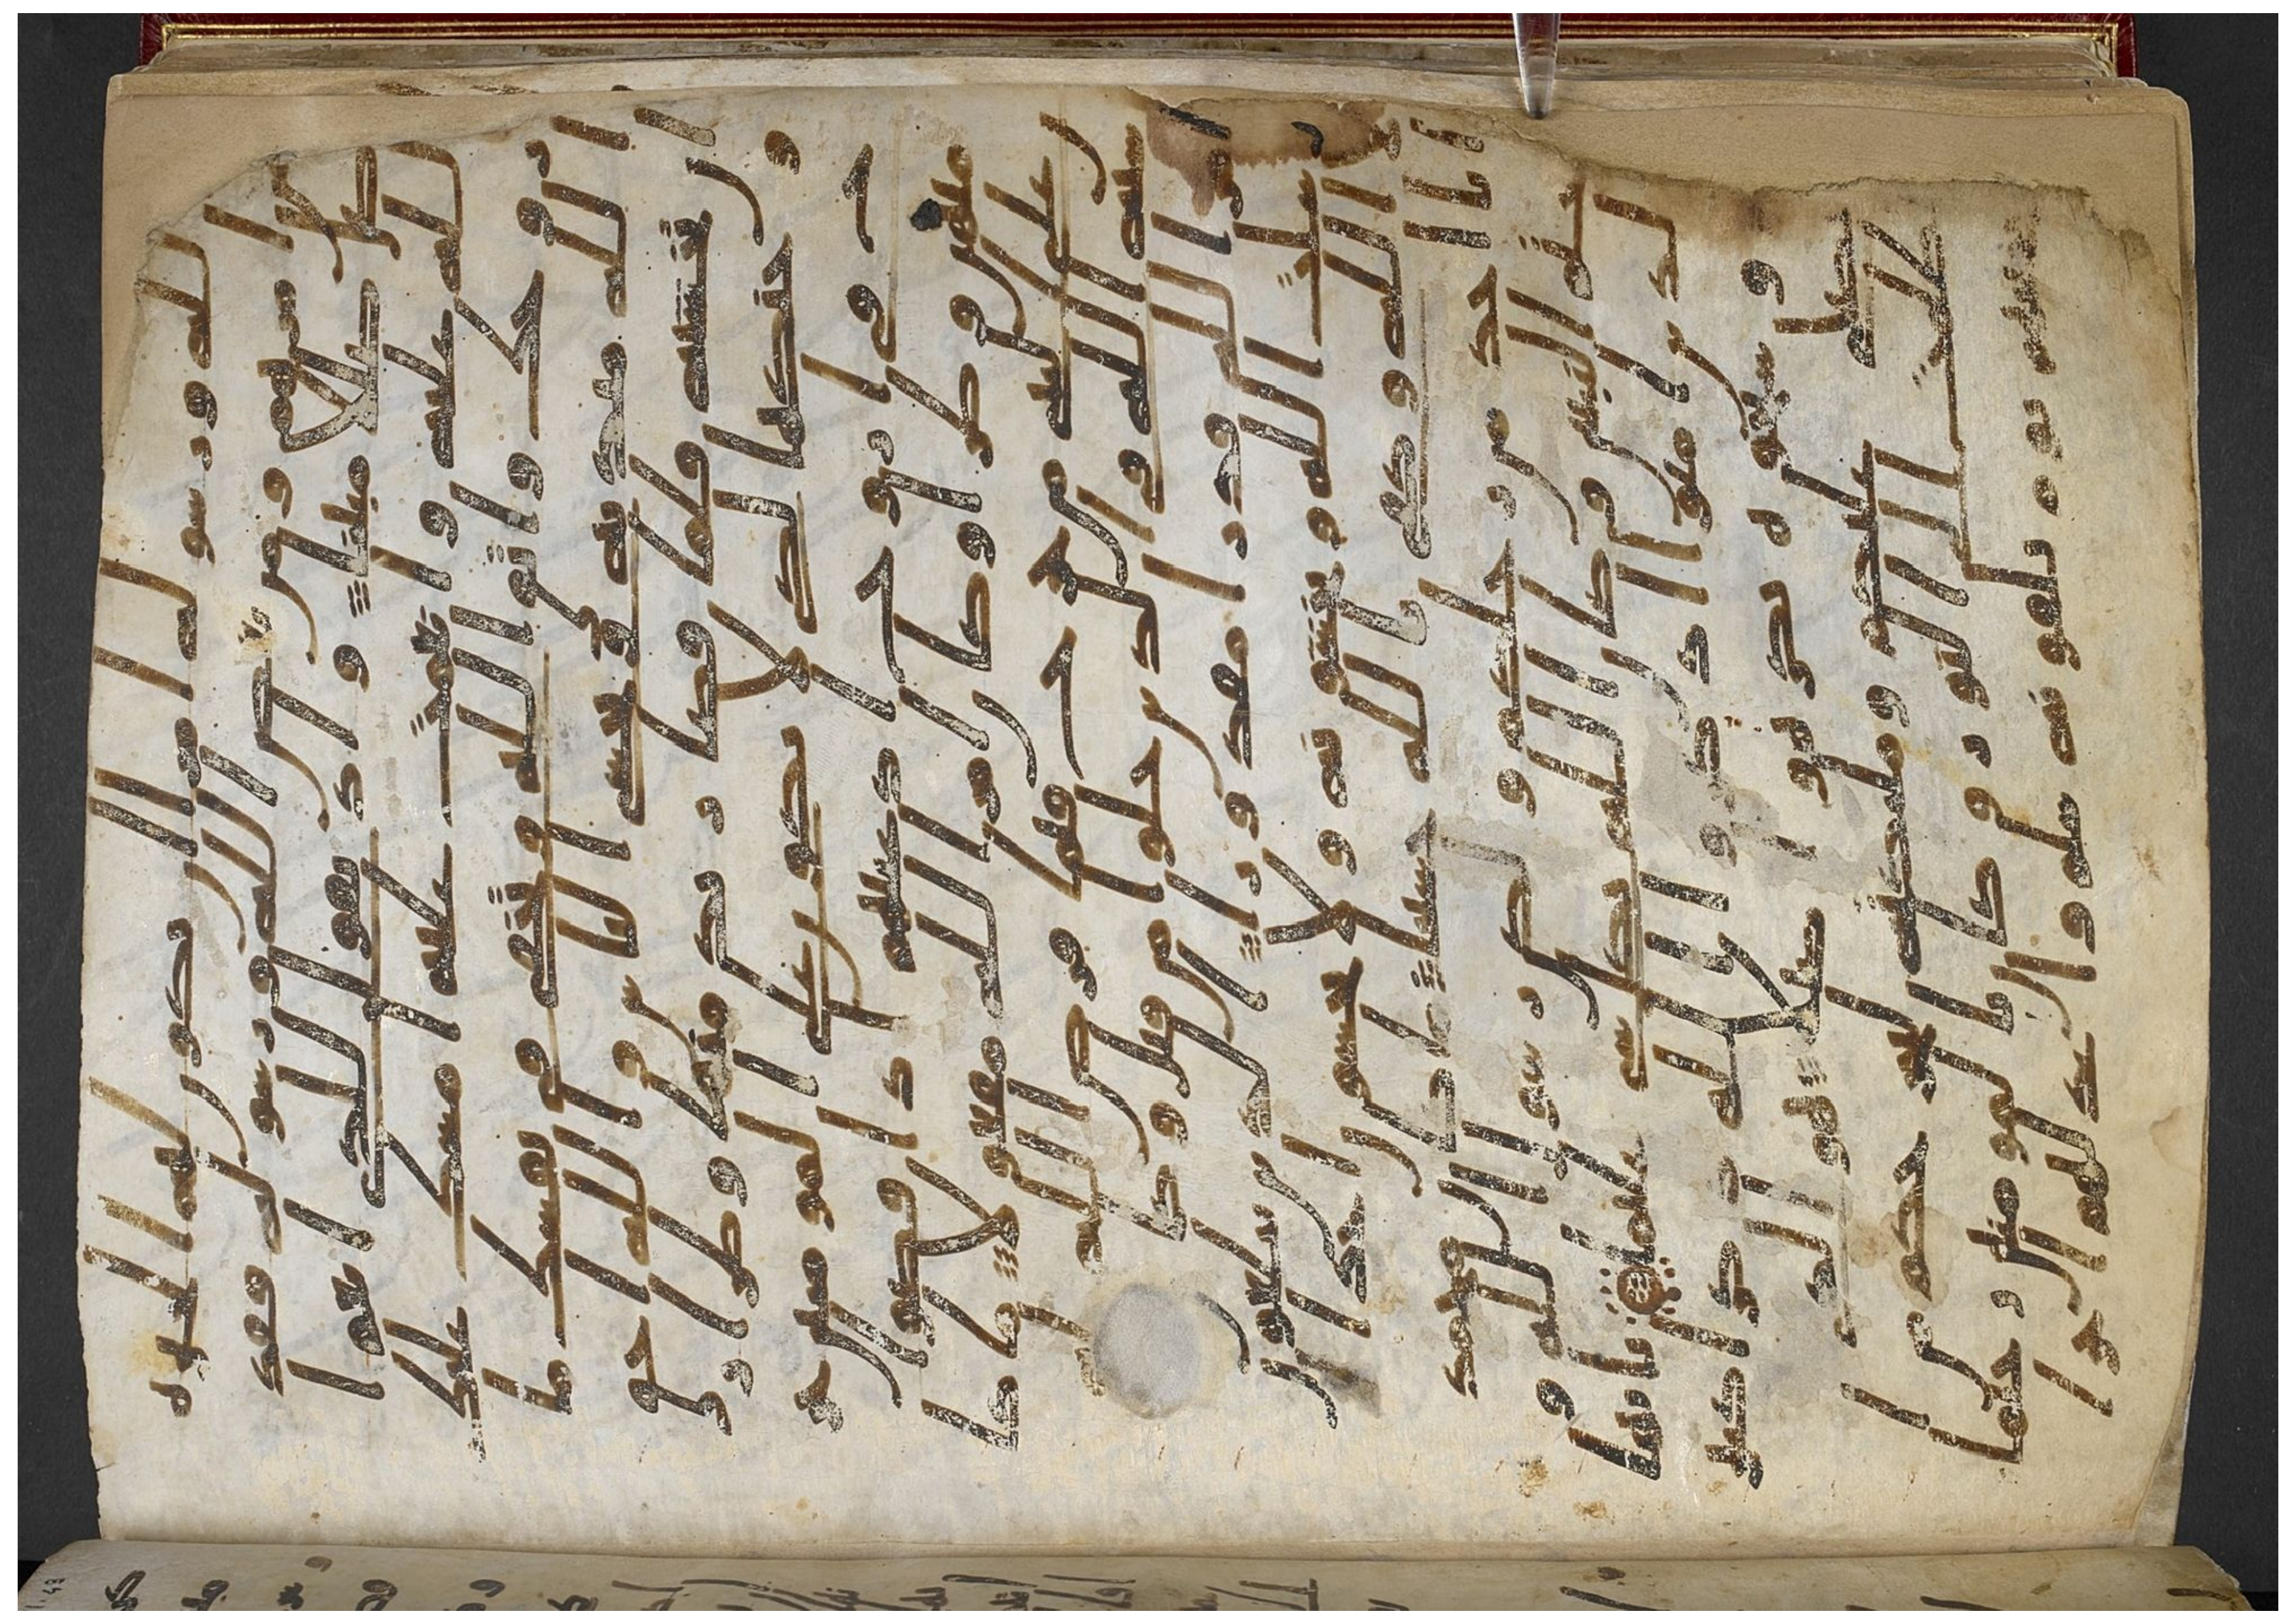 الله ورسوله امرا ان يكون لهم الخيره
من امرهم ومن يعص الله ورسوله فقد
ضل ضللا مبينا واذ تقول للذي انعم ا
لله عليه وانعمت عليه امسك عليك
زوجك واتق الله وتخفي في نفسك ما
الله مبديه وتخشى الناس والله احق
ان تخشيه فلما قضى زيد منها وطرا زو
جنكها لكي لا يكون على المومنين حر
ج في ازوج ادعيائهم اذا قضوا
منهن وطرا وكان امر الله مفعولا ما كا
ن على النبي من حرج فيما فرض الله
له سنه الله في الذين خلوا من قبل وكا
ن امر الله قدرا مقدورا الذين يبلغون
رسلت الله ويخشونه ولا يخشون احد
ا الا الله وكفى بالله حسيبا ما كان محمد
ابا احد من رجلكم ولكن رسول الله و
ختم النبين وكان الله بكل شي عليما يايها
الذين امنوا اذكروا الله ذكرا كثيرا و
سبحوه بكره واصيلا هو الذي يصلي
عليكم وملئكته ليخرجكم من ا
لظلمت الى النور وكان بالمومنين رحيما
تحيتهم يوم يلقونه سلم واعد لهم اجرا